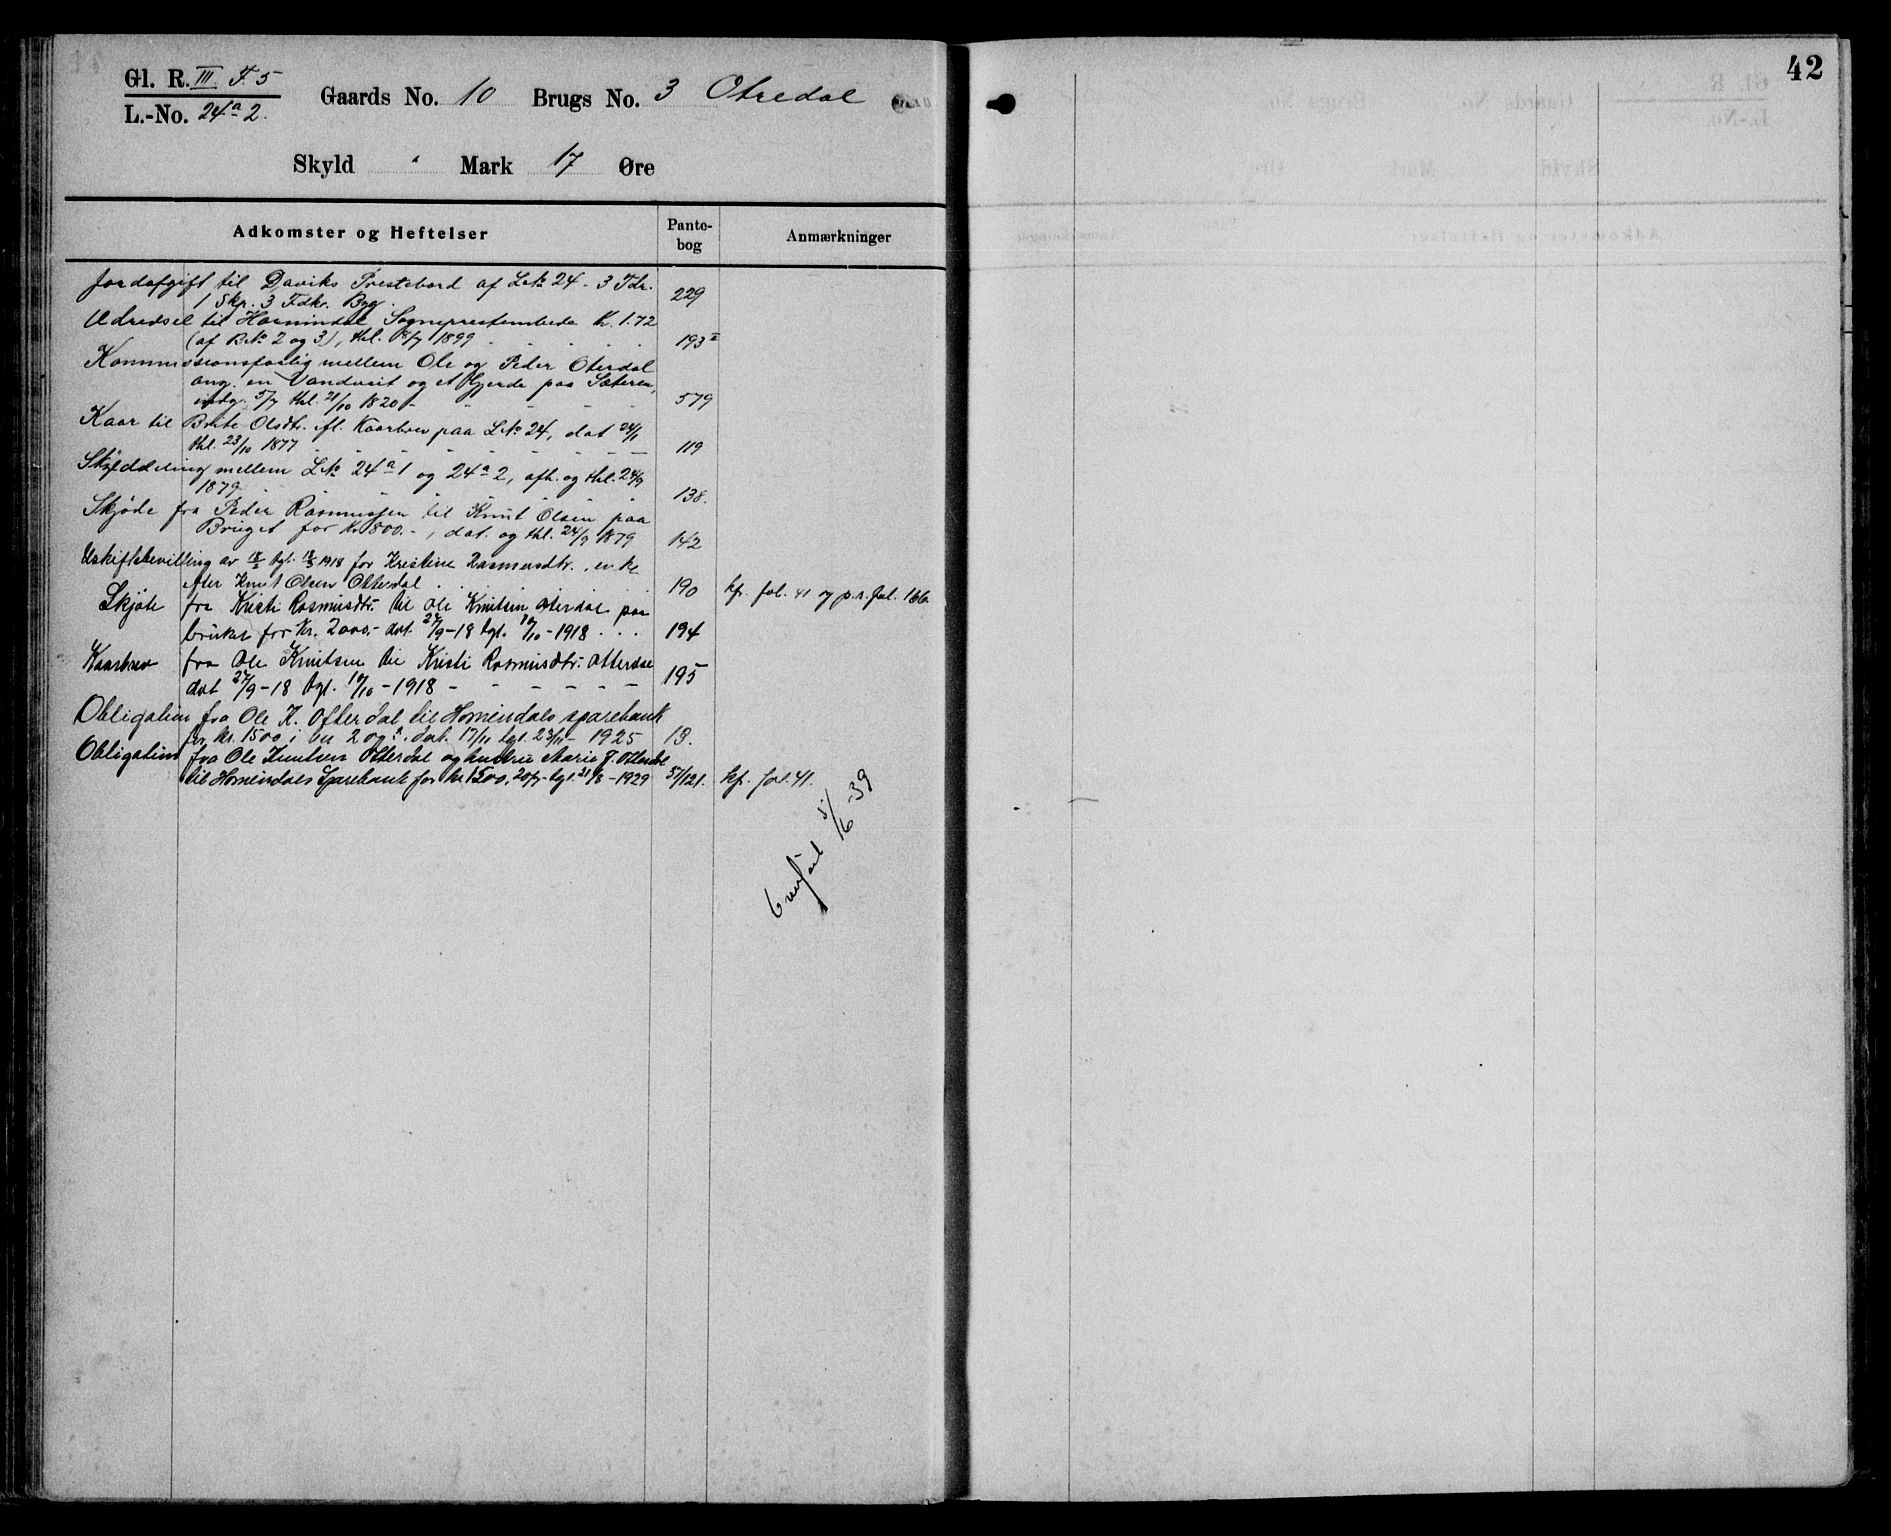 42
Gl. R. III F. 5
L.-No. 24a 2.
Gaards No. 10 Brugs No. 3 Otredal
Skyld " Mark 17 Øre
Adkomster og Heftelser
Pante-
bog
Anmærkninger
Jordafgift til Daviks Prestebord af L.№ 24 - 3 Tdr.
1 Skp. 3 Fdkr. Byg. 229
Udredsel til Hornindal Sogneprestembede Kr. 1.72
(af B.№ 2 og 3), thl. 1899 193 II
Kommissionsforlig mellem Ole og Peder Oterdal
ang. en Vandveit og et Gjerde paa Sæteren,
5/7 thl. 21/10 1820 - 579
Kaar til Brite Olsdtr. ifl. Kaarbrev paa L.№ 24, dat 24/1
thl. 23/10 1877 119
Skylddeling mellem L.№ 24a 1 og 24a 2, afh. og thl. 24/9
1879 138.
Skjøde fra Peder Rasmussen til Knut Olsen paa
Bruget for Kr 800. -, dat. og thl. 24/9 1879 142
Uskiftebevilling av tgl. 1918 for Kristine Rasmusdtr., enke
efter Knut Olsen Otterdal 190 kfr. fol. 41 og p.r. fol. 166
Skjøte fra Kristi Rasmusdtr. til Ole Knutsen Oterdal paa
bruket for Kr. 2000,- dat. 27/9-18 tgl. 10/10-1918 . . . 194
Kaarbrev fra Ole Knutsen til Kristi Rasmusdtr. Otterdal
dat 27/9-18 tgl. 10/10-1918 - - - - - - 195
Obligation fra Ole K. Otterdal til Hornindals sparebank
for kr. 1500 i bn 2 og 3. dat. 17/11 tgl. 23/11 - 1925 13.
Obligation fra Ole Knutsen Otterdal og hustru Marie J. Otterdal
til Hornindals Sparebank for kr 1500, 20/7- tgl. 21/8-1929 57/121. kfr. fol. 41.
Overført 5/6 39